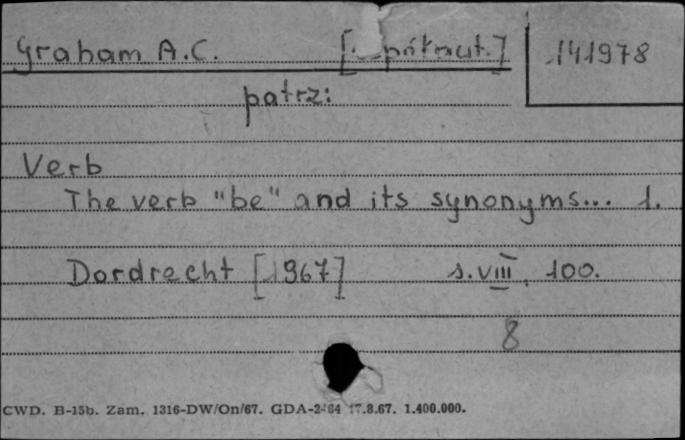 Graham A.C. [współaut.] 141978
patrz:
Verb
The verb "be" and its synonyms... 1.
Dordrecht [1967] s. VIII, 100.
8
CWD. B-15b. Zam. 1316-DW/On/67. GDA-2-64 17.8.67. 1.400.000.